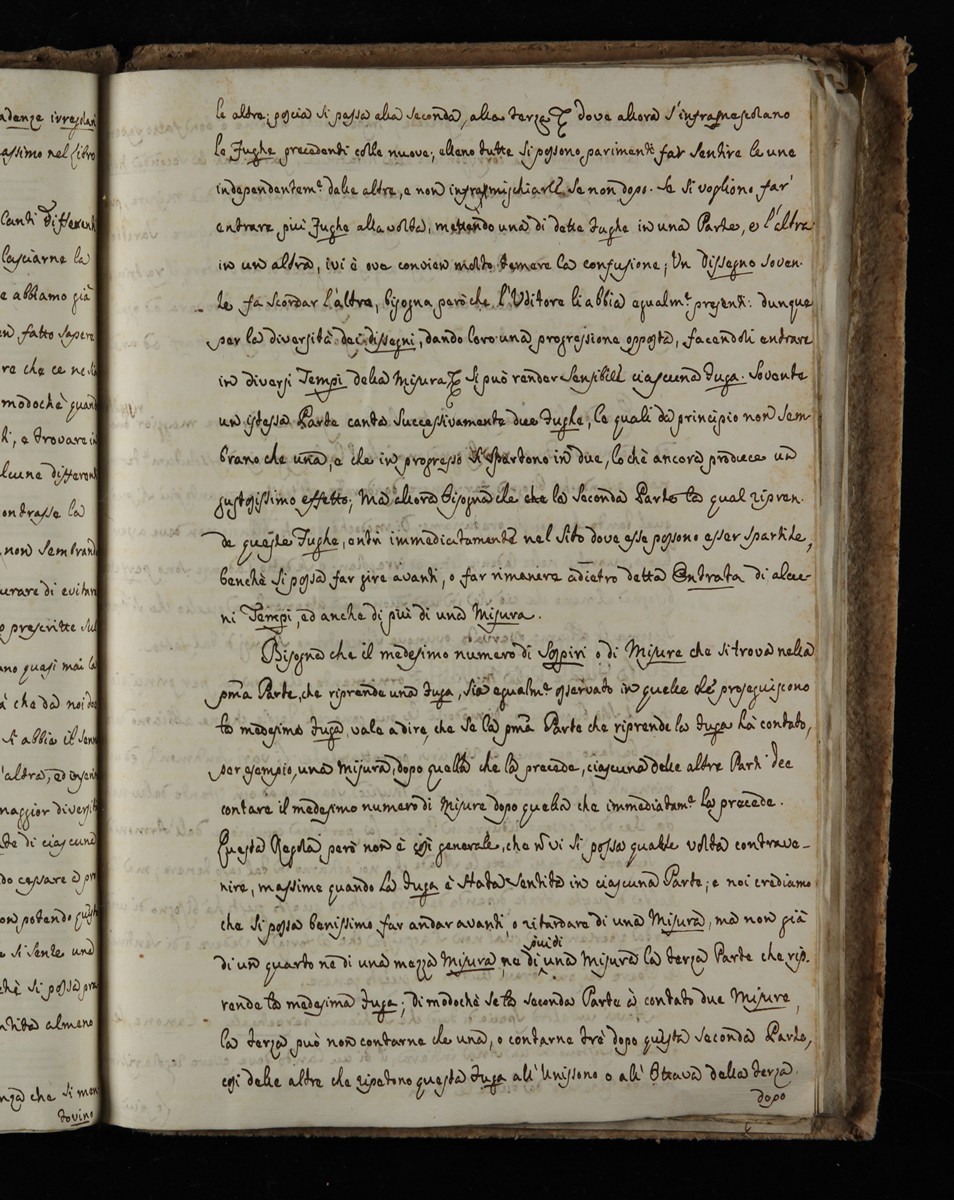 adenze irregolari
assimo nel Libro
Canti differenti
lasciarne la
e abbiamo già
fatto sapere
re che ce ne
modochè quan
i, e trovare in
lcune differen
ontrasse la
non sembrand
urare di evitar
o prescritte sul
ano quasi mai la
à che da noi
Si abbia il
'altra, ed
maggior diversit
te di ciascuna
do cessare
on potendo
e si sente una
hè si possa
ntita almeno
nza che si
tovino
le altre; poscia si passa alla seconda, alla terza &c dove allora s'inframescolano
le Fughe precedenti colle nuove; elleno tutte si possono pariment.e far sentire le une
independentem.e dalle altre, e non inframmischiarle se non dopo. Se si vogliono far'
entrare più Fughe alla volta, mettendo una di dette fughe in una Parte, e l'altra
in un altra, ivi è ove convien molto temere la confusione; Un dissegno soven-
te fa scordar l'altro, bisogna però che l'Uditore li abbia egualm.e presenti: dunque
per la diversità dei dissegni, dando loro una progressione opposta, facendoli entrare
in diversi Tempi della Misura &c si può render sensibile ciascuna fuga. Sovente
un istessa Parte canta successivamente due fughe, le quali da principio non sem-
brano che una, e che in progresso si spartono in due, lo chè ancora produce un
gustosissimo effetto; Ma allora bisogna che la seconda Parte la qual ripren-
de queste Fughe, entri immediatamente nel sito dove esse possono esser spartite,
benchè si possa far gire avanti, o far rimanere adietro detta Entrata di alcu-
ni Tempi, ed anche di più di una Misura.
Bisogna che il medesimo numero di Sospiri o di Misure che si trova nella
pma Parte, che riprende una fuga, sia egualm.e osservato in quelle che proseguiscono
la medesima fuga, vale a dire, che se la pma Parte che riprende la fuga hà contato,
per esempio, una misura, dopo quella che la precede, ciascuna delle altre Parti dee
contare il medesimo numero di Misure dopo quella che immediatam.e la precede.
Questa Regola però non è così generale, che n vi si possa qualche volta contrave-
nire, massime quando la fuga è stata sentita in ciascuna Parte; e noi crediamo
che si possa benissimo far andar avanti, o ritardare di una Misura, ma non già
di un quarto ne di una mezza Misura, ne di una misura la terza Parte che rip-
rende la medesima fuga; di modochè se la seconda Parte à contato due Misure,
la terza può non contarne che una, o contarne trè dopo questa seconda Parte,
così delle altre che ripetono questa fuga all'Unissono o all'Ottava della terza.
dopo